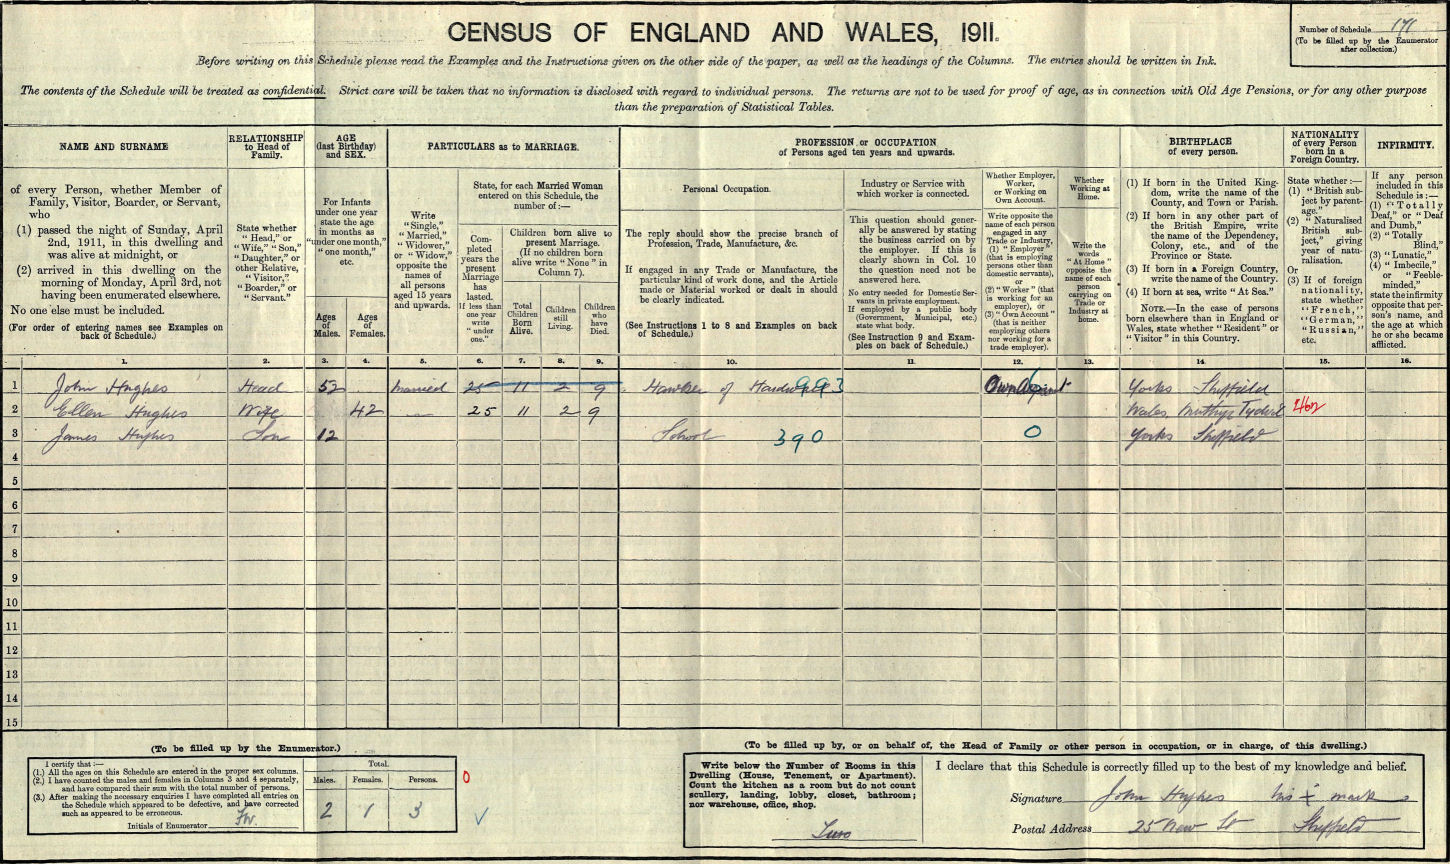 CENSUS OF ENGLAND AND WALES, 1911.
Number of Schedule 171
(To be filled up by the Enumerator
after collection.)
Before writing on this Schedule please read the Examples and the Instructions given on the other side of the paper, as well as the headings of the Columns. The entries should be written in Ink.
The contents of the Schedule will be treated as confidential. Strict care will be taken that no information is disclosed with regard to individual persons. The returns are not to be used for proof of age, as in connection with Old Age Pensions, or for any other purpose
than the preparation of Statistical Tables.
NAME AND SURNAME
RELATIONSHIP
to Head of
Family.
AGE
(last Birthday)
and SEX.
PARTICULARS as to MARRIAGE.
PROFESSION or OCCUPATION
of Persons aged ten years and upwards.
BIRTHPLACE
of every person.
NATIONALITY
of every Person
born in a
Foreign Country.
INFIRMITY.
of every Person, whether Member of
Family, Visitor, Boarder, or Servant,
who
(1) passed the night of Sunday, April
2nd, 1911, in this dwelling and
was alive at midnight, or
(2) arrived in this dwelling on the
morning of Monday, April 3rd, not
having been enumerated elsewhere.
No one else must be included.
(For order of entering names see Examples on
back of Schedule.)
State whether
"Head," or
"Wife," "Son,"
"Daughter," or
other Relative,
"Visitor,"
"Boarder," or
"Servant."
For Infants
under one year
state the age
in months as
"under one month,"
"one month,"
etc.
Ages
of
Males.
Ages
of
Females.
Write
"Single,"
"Married,"
"Widower,"
or "Widow,"
opposite the
names of
all persons
aged 15 years
and upwards.
State, for each Married Woman
entered on this Schedule, the
number of:—
Completed
years the
present
Marriage
has
lasted.
If less than
one year
write
"under
one."
Children born alive to
present Marriage.
(If no children born
alive write "None" in
Column 7).
Total
Children
Born
Alive.
Children
still
Living.
Children
who
have
Died.
Personal Occupation.
The reply should show the precise branch of
Profession, Trade, Manufacture, &c.
If engaged in any Trade or Manufacture, the
particular kind of work done, and the Article
made or Material worked or dealt in should
be clearly indicated.
(See Instructions 1 to 8 and Examples on back
of Schedule.)
Industry or Service with
which worker is connected.
This question should gener-
ally be answered by stating
the business carried on by
the employer. If this is
clearly shown in Col. 10
the question need not be
answered here.
No entry needed for Domestic Ser-
vants in private employment.
If employed by a public body
(Government, Municipal, etc.)
state what body.
(See Instruction 9 and Exam-
ples on back of Schedule.)
Whether Employer,
Worker,
or Working on
Own Account.
Write opposite
the name of each person
engaged in any
Trade or Industry,
(1) "Employer"
(that is employing
persons other than
domestic servants),
or
(2) "Worker" (that
is working for an
employer), or
(3) "Own Account"
(that is neither
employing others
nor working for a
trade employer).
Whether
Working at
Home.
Write the
words
"At Home"
opposite the
name of each
person
carrying on
Trade or
Industry at
home.
(1) If born in the United King-
dom, write the name of the
County, and Town or Parish.
(2) If born in any other part of
the British Empire, write
the name of the Dependency,
Colony, etc., and of the
Province or State.
(3) If born in a Foreign Country,
write the name of the Country.
(4) If born at sea, write "At Sea."
NOTE.—In the case of persons
born elsewhere than in England or
Wales, state whether "Resident" or
"Visitor" in this Country.
State whether:—
(1) "British sub-
ject by parent-
age,"
(2) "Naturalised
British sub-
ject," giving
year of natu-
ralisation.
Or
(3) If of foreign
nationality,
state whether
"French,"
"German,"
"Russian,"
etc.
If any person
included in this
Schedule is:—
(1) "Totally
Deaf," or "Deaf
and Dumb,"
(2) "Totally
Blind,"
(3) "Lunatic,"
(4) "Imbecile,"
or "Feeble-
minded,"
state the infirmity
opposite that per-
son's name, and
the age at which
he or she became
afflicted.
1. 2. 3. 4. 5. 6. 7. 8. 9. 10. 11. 12. 13. 14. 15. 16.
1 John Hughes Head 52 Married 25 11 2 9 Hawker of Hardware 993 Own Account Yorks Sheffield
2 Ellen Hughes Wife 42 25 11 2 9 Wales Merthyr Tydvil 462
3 James Hughes Son 12 School 390 0 Yorks Sheffield
4
5
6
7
8
9
10
11
12
13
14
15
(To be filled up by the Enumerator.)
I certify that:—
(1.) All the ages on this Schedule are entered in the proper sex columns.
(2.) I have counted the males and females in Columns 3 and 4 separately,
and have compared their sum with the total number of persons.
(3.) After making the necessary enquiries I have completed all entries on
the Schedule which appeared to be defective, and have corrected
such as appeared to be erroneous.
Initials of Enumerator
Total.
Males. Females. Persons.
2 1 3
0
(To be filled up by, or on behalf of, the Head of Family or other person in occupation, or in charge, of this dwelling.)
Write below the Number of Rooms in this
Dwelling (House, Tenement, or Apartment).
Count the kitchen as a room but do not count
scullery, landing, lobby, closet, bathroom;
nor warehouse, office, shop.
Two
I declare that this Schedule is correctly filled up to the best of my knowledge and belief.
Signature John Hughes his x mark
Postal Address 25 New St Sheffield